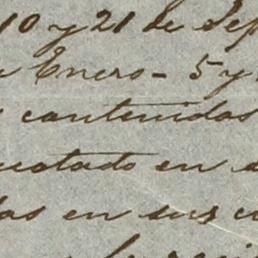 10 y 21 de Sep
Enero - 5 y
contenidas
notado en
en sus